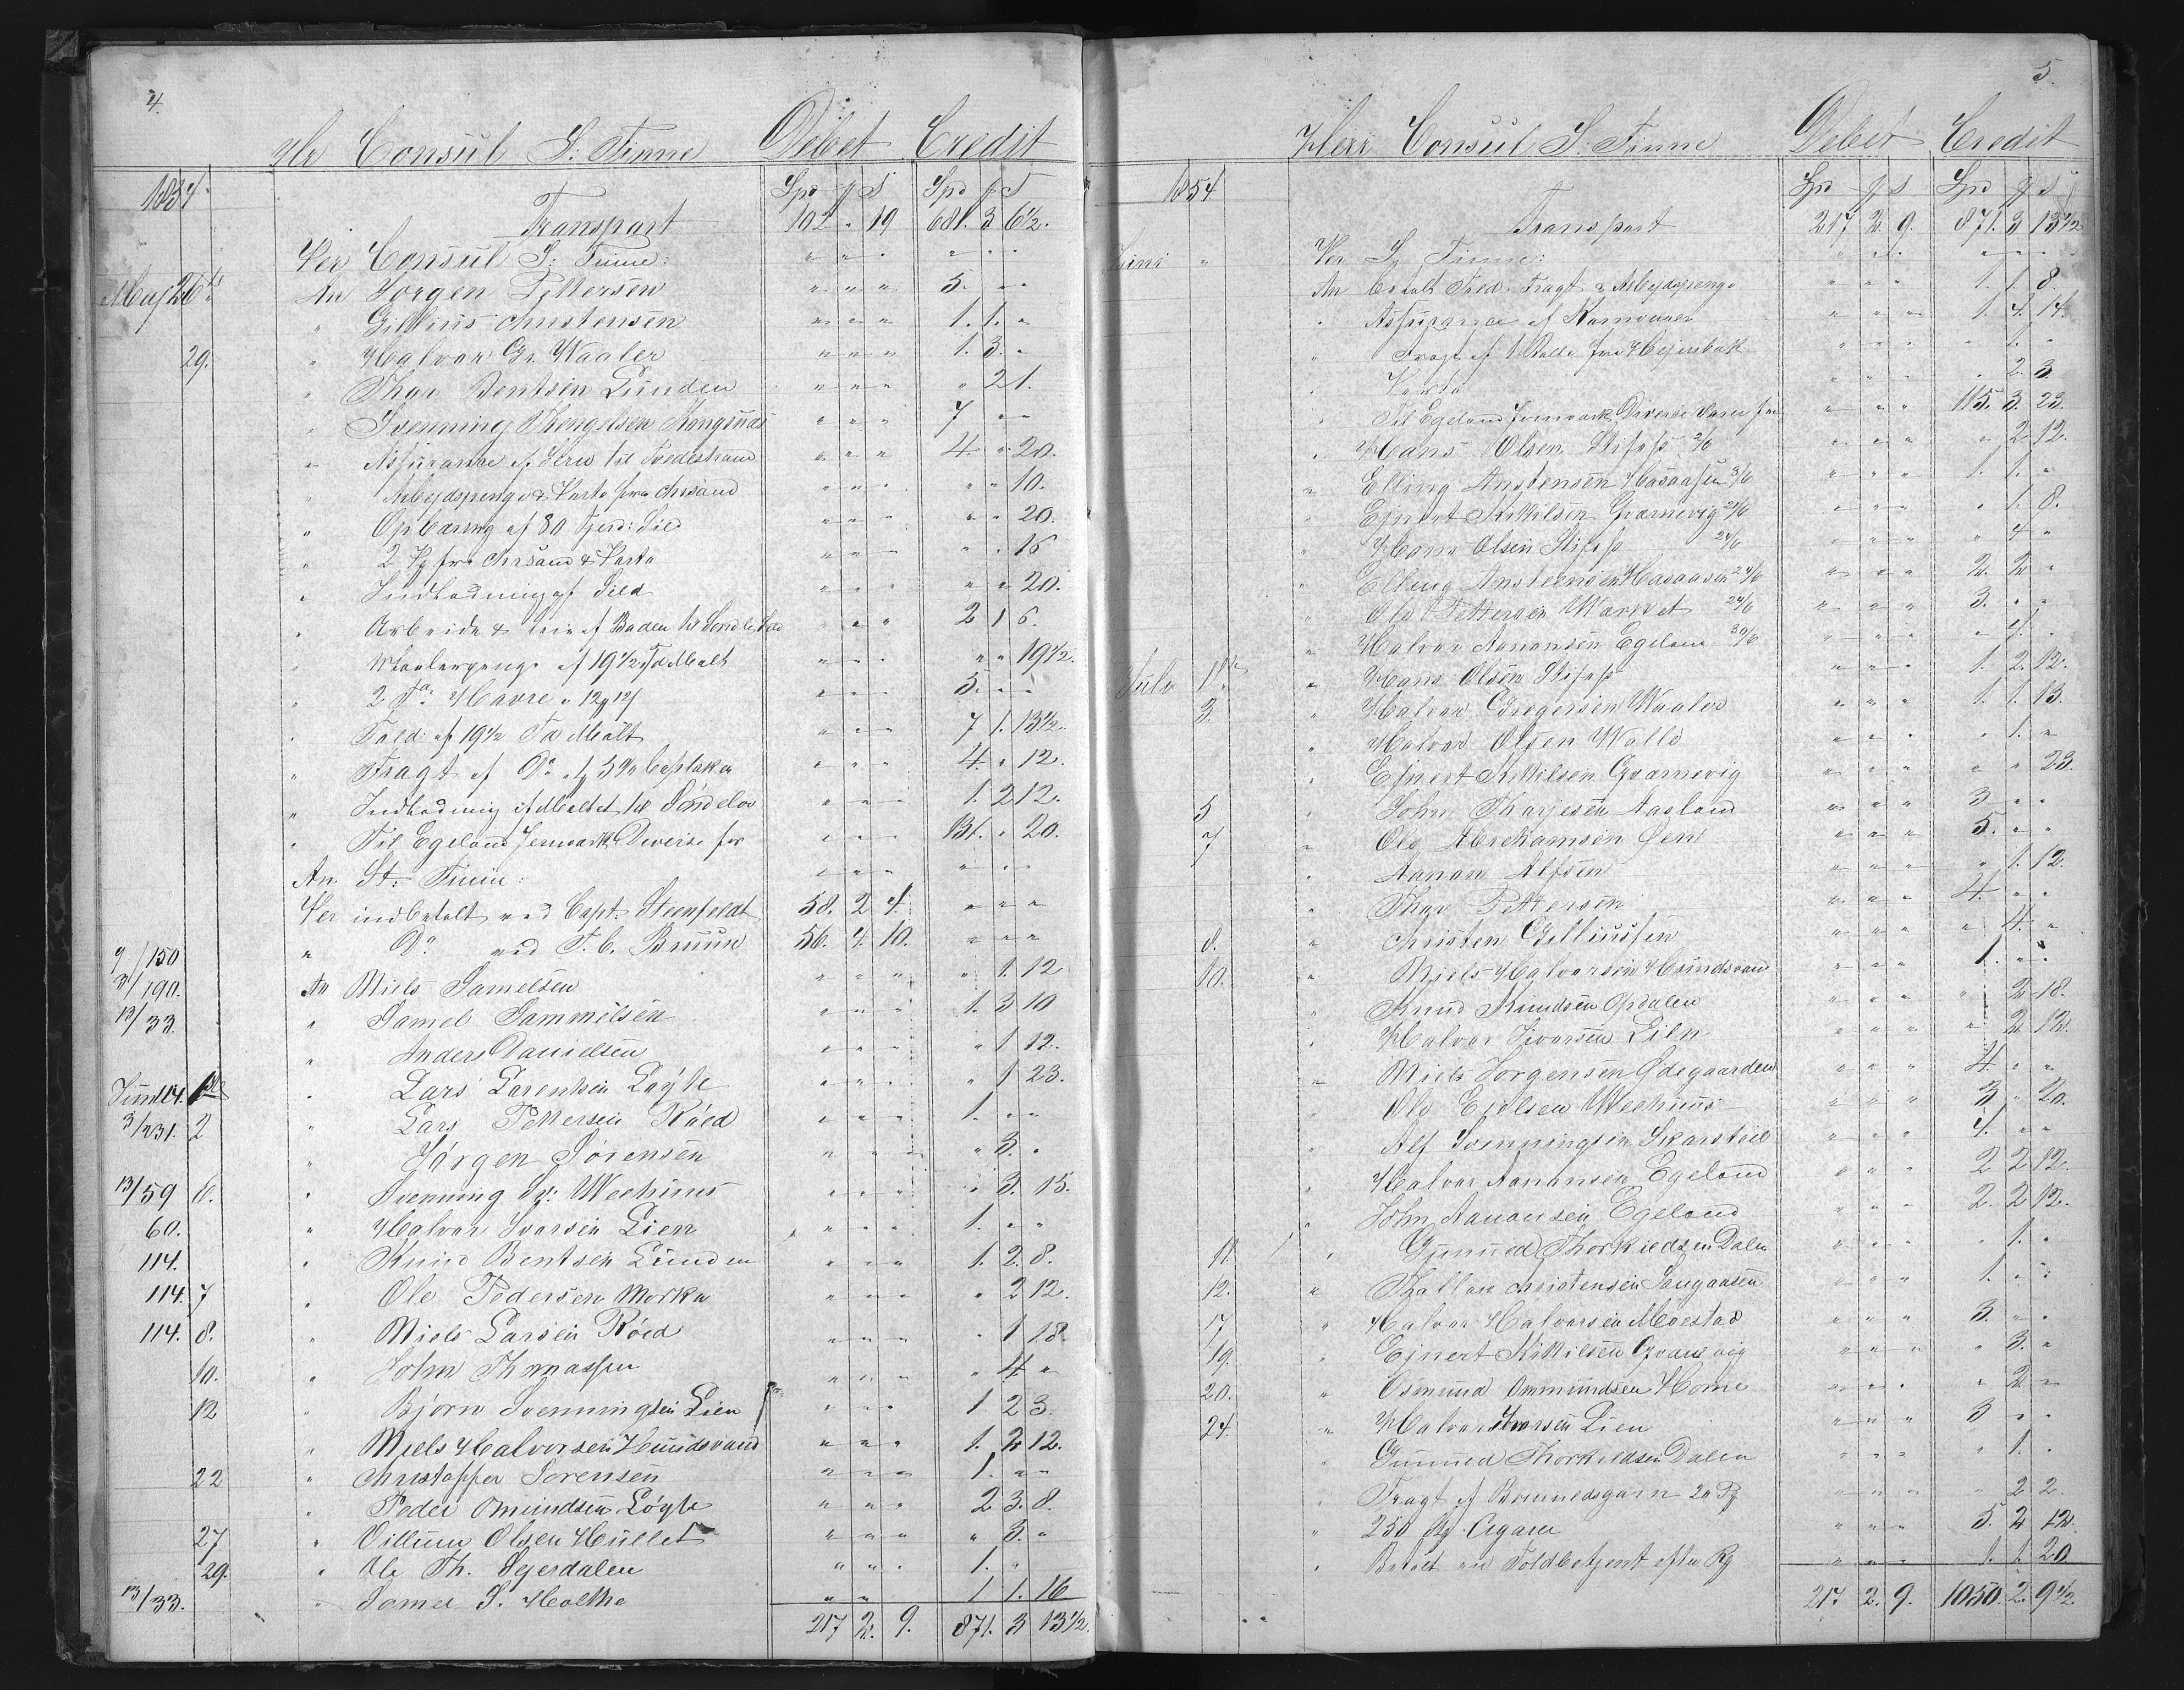 4.
Hr Consul S: Finne Debet Credit
1854. Spd ƒ S Spd ƒ S
Transport 102 " 19 681. 3 6½.
Per Consul S: Finne: " " " " " "
Maj 26 An Jörgen Pettersen " " " 5. " "
" Gillius Christensen " " " 1. 1. "
29. " Halvor Gr. Waaler " " " 1. 3. "
" Thor Bentsen Lunden " " " " 2 1.
" Svenning " " " 7 " "
" Assurance af til Tvedestrand " " " 4. " 20.
" Arbejdspenge & Porto fra Chrsand " " " " " 10.
" Opbæring af 80 Fjerd: Sild " " " " " 20.
" 2 fra Chrsand & Porto " " " " " 16
" Indladning af Sild " " " " " 20.
" Arbeide & leie af Baaden til " " " 2 1 6.
" Maalerpenge af 19½ Td Malt " " " " " 19½.
" 2 Td Havre " " " 5. " "
" Told af 19½ Td Malt " " " 7 1. 13½.
" Fragt af Do " " " 4. " 12.
" Indladning af Maltet til Söndelov " " " 1. 2 12.
" Til Egeland Jernværk Diverse for " " " 131. " 20.
An St: Finne: " " " " " "
Per indbetalt ved Capt. Steenfeldt 58. 2 4. " " "
9/150 " Do ved T. C. Bruun 56. 4. 10. " " "
/190. An Niels Samelsen " " " " 1. 12
13/33. " Samel Sammelsen " " " 1. 3 10
" Anders Danielsen " " " " 1 12.
Juni 14. 1ste " Lars Larentsen Löyte " " " " 1 23.
3/231. 2 " Lars Pettersen Röed " " " 1. " "
" Jörgen Sörensen " " " " 3. "
13/59 6. " Svenning " " " " 3. 15.
60. " Halvor Ivarsen Lien " " " 1. " "
114. " Knud Bentsen Lunden " " " 1. 2. 8.
114. 7 " Ole Pedersen Morka " " " " 2 12.
114. 8. " Niels Larsen Röed " " " " 1 18.
10. " John Thomassen " " " " 4 "
12 " Björn Svenningsen Lien " " " 1 2 3.
" Niels Halvorsen Hundsvand " " " 1. 2 12.
22 " Christoffer Sorensen " " " 1. " "
" Peder Omundsen Löyte " " " 2 3. 8.
27 " Villum Olsen Hullet " " " " 3. "
29. " Ole Th. Sejersdalen " " " 1. "
13/33. " Samel S. Holthe " " 1 1. 16
217 2. 9. 871. 3 13½.
5.
Herr Consul S: Finne Debet Credit
1854. Spd ƒ s Spd ƒ s
Transport 217 2. 9. 871. 3 13½
Juni " Per S; Finne: " " " " " "
An betalt Told. Fragt & Arbejdspenge " " " 1. 1 8.
" Assurance af " " " 1. 4. 14.
" Fragt af 1 Balle fra " " " " 1. "
" Porto " " " " 2. 3
" Til Egeland Jernværk Diverse Varer for " " " 115. 3. 23.
" Hans Olsen 2/6 " " " " 2 12.
" Elling Anstensen Haasaasen 3/6 " " " 1. 1. "
" Ejnert Kittilsen Gvarnevig 24/6 " " " " 1. 8.
" Hans Olsen 24/6 " " " " 4 "
" Elling Anstensen Haasaasen 24/6 " " " 2. 2 "
" Ole Pettersen 24/6 " " " 3. " "
" Halvor Aanonsen Egeland 30/6 " " " " 4. "
Juli 1ste " Hans Olsen " " " 1. 2. 12.
3. " Halvor Gregersen Waaler " " " 1. 1. 13.
" Halvor Olsen Walle " " " " 1. "
" Ejnert Kittilsen Gvarnevig " " " " " 23.
5 " John Tharjesen Aasland " " " 3 " "
7 " Ole Abrahamsen " " " 5. " "
" Aanon Alfsen " " " " 1. 12.
" Thor Pettersen " " " 4. " "
8. " Christen Gilliussen " " " " 4. "
10. " Niels Halvorsen Hundsvand " " " 1. " "
" Knud Knudsen Opdalen " " " " 2 18.
" Halvor Ivarsen Lien " " " " 2 12.
" Niels Jörgensen Ödegaarden " " " 4 " "
" Ole " " " 3 " 20.
" Alf Svenningsen " " " 4. " "
" Halvor Aanonsen Egeland " " " 2 2 12.
" John Aanonsen Egeland " " " 2. 2 12.
11. " Gunned Thorkildsen Dalen " " " " 1. "
12. " Thallak Christensen " " " 1. " "
17 " Halvor Halvorsen Moestad " " " 3. " "
19. " Ejnert Kittilsen Gvarnevig " " " " 3. "
20. " Osmund Ommundsen Horne " " " " 2 "
24. " Halvor Ivarsen Lien " " " 3 " "
" Gunned Thorkildsen Dalen " " " " 1. "
" Fragt af Bomuldsgarn " " " " 2 2.
" 250 Cigarer " " " 5. 2 12.
" Betalt en Toldbetjent efter Rg " " " 1. 1. 20
217 2. 9. 1050. 2. 9½.